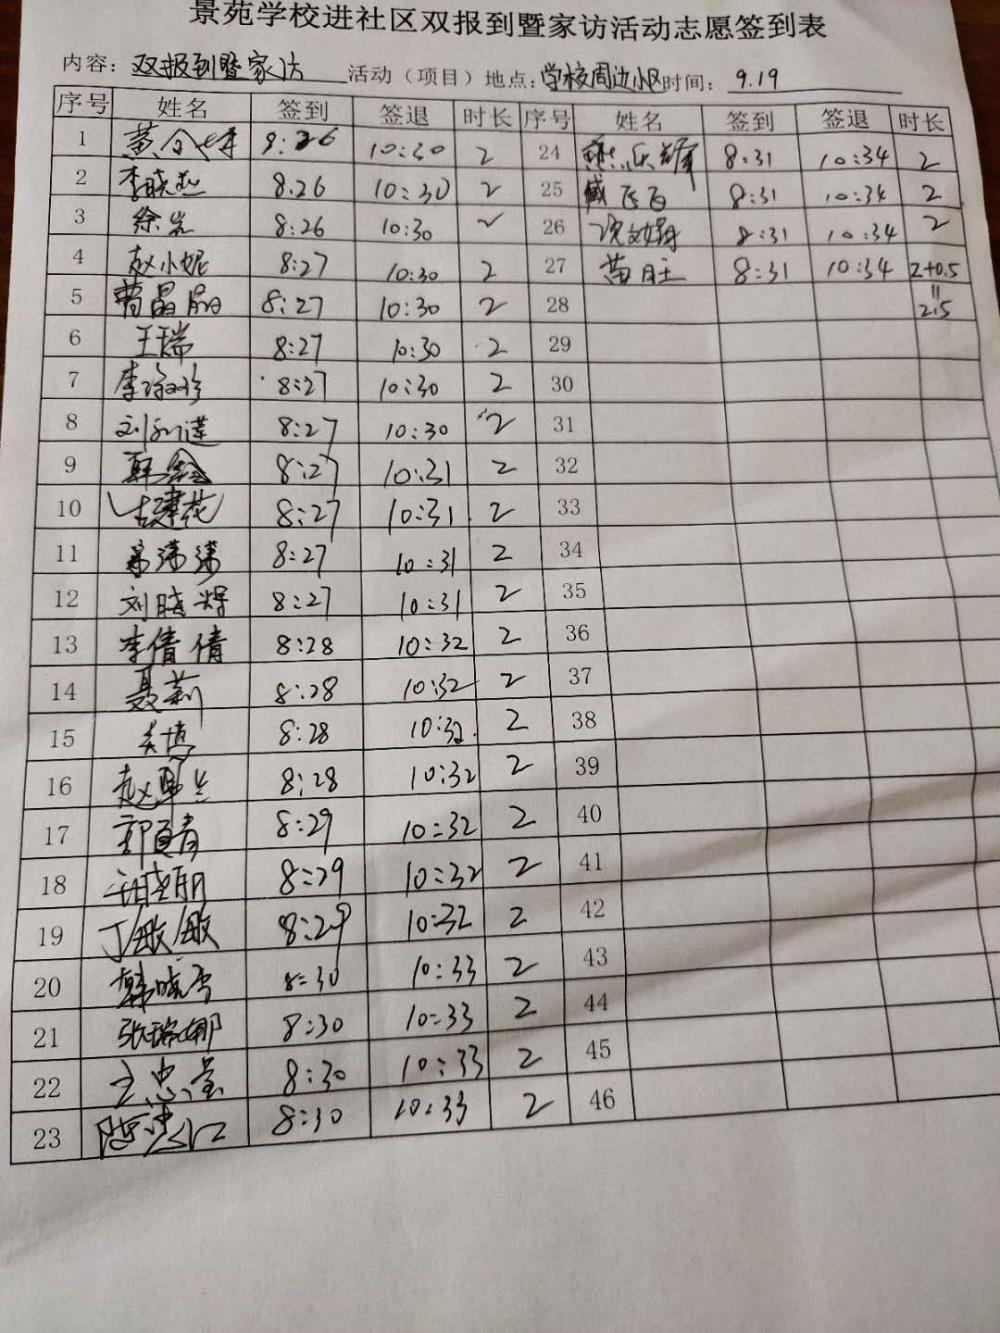 景苑学校进社区双报到暨家访活动志愿签到表
内容：双报到暨家访 活动（项目）地点：学校周边小区 时间：9.19
序号 姓名 签到 签退 时长 序号 姓名 签到 签退 时长
1 黄 8:26 10:30 2 24 8:31 10:34 2
2 李晓 8.26 10:30 2 25 臧飞飞 8:31 10:34 2
3 徐岩 8:26 10:30 2 26 沈文娟 8:31 10:34 2
4 赵小妮 8:27 10:30 2 27 苗旺 8:31 10:34 2+0.5
5 曹晶晶 8:27 10:30 2 28 =2.5
6 王瑞 8:27 10:30 2 29
7 李 8:27 10:30 2 30
8 刘 莲 8:27 10:30 2 31
9 8:27 10:31 2 32
10 古建花 8:27 10:31 2 33
11 8:27 10:31 2 34
12 刘晓辉 8:27 10:31 2 35
13 李倩倩 8:28 10:32 2 36
14 聂莉 8:28 10:32 2 37
15 8:28 10:32 2 38
16 赵 8:28 10:32 2 39
17 郭 8:29 10:32 2 40
18 8:29 10:32 2 41
19 丁敏敏 8:29 10:32 2 42
20 韩晓雪 8:30 10:33 2 43
21 张瑞娜 8:30 10:33 2 44
22 王忠 8:30 10:33 2 45
23 陈 8:30 10:33 2 46